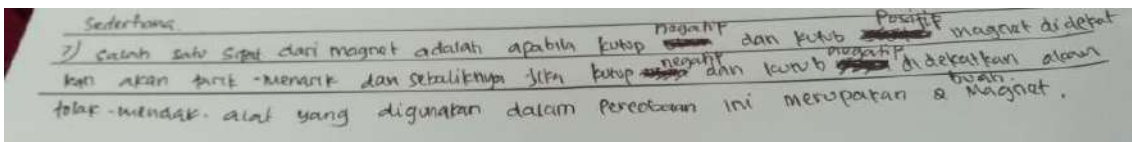 Sederhana
7) salah satu sifat dari magnet adalah apabila kutup negatif dan kutub Positif magnet didekat
kan akan tarik-menarik dan sebaliknya jika kutup negatif dan kurub negatif didekatkan akan
tolak-mendak. alat yang digunakan dalam Percobaan ini merupakan 2 buah Magnet.